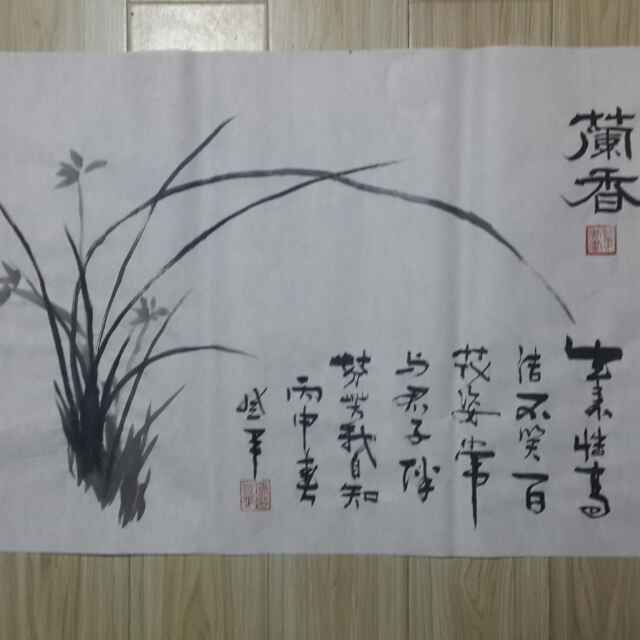 蘭香
生来性高
洁不笑百
花姿常
与君子伴
芬芳我自知
丙申春